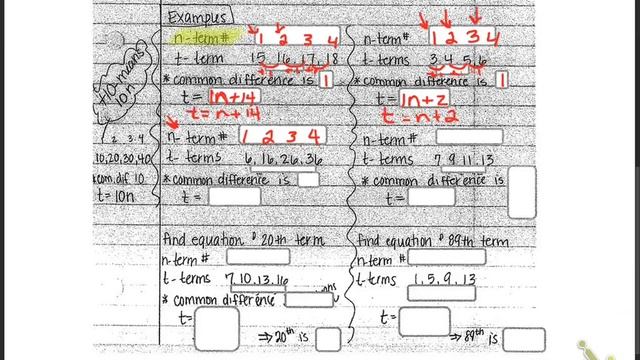 Examples
n-term# 1 2 3 4
t-term 15, 16, 17, 18
* common difference is 1
t= 1n+14
t= n+14
n- term# 1 2 3 4
t- terms 6, 16, 26, 36
* common difference is
t=
n-term# 1 2 3 4
t-terms 3, 4, 5, 6
* common difference is 1
t= 1n+2
t= n+2
n-term#
t-terms 7, 9, 11, 13
* common difference is
t=
+10 means
10n
2 3 4
10, 20, 30, 40
*com. dif 10
t= 10n
find equation 20th term
n-term#
t-terms 7, 10, 13, 16
* common difference
t=
⇒ 20th is
find equation 89th term
n-term #
t-terms 1, 5, 9, 13
t=
⇒ 89th is